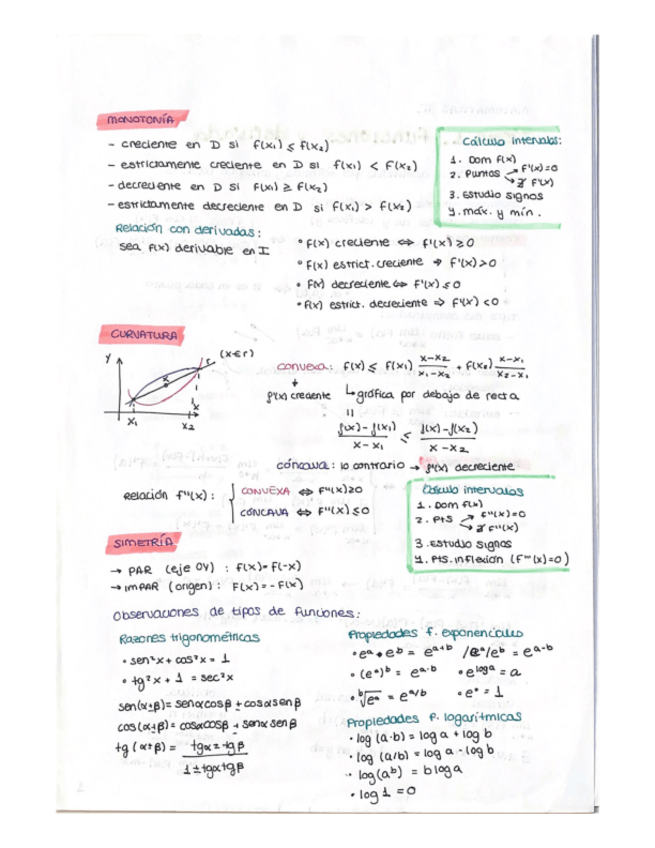 MONOTONÍA
- creciente en D si f(x₁) ≤ f(x₂)
- estrictamente creciente en D si f(x₁) < f(x₂)
- decreciente en D si f(x₁) ≥ f(x₂)
- estrictamente decreciente en D si f(x₁) > f(x₂)
Cálculo intervalos:
1. Dom f(x)
2. Puntos ↗ f'(x)=0
↘ ∄ f'(x)
3. Estudio signos
4. máx. y mín.
Relación con derivadas:
sea f(x) derivable en I
• f(x) creciente ⇔ f'(x) ≥ 0
• f(x) estrict. creciente ⇒ f'(x) > 0
• f(x) decreciente ⇔ f'(x) ≤ 0
• f(x) estrict. decreciente ⇒ f'(x) < 0
CURVATURA
y
r
(x∈r)
x
x
x₁
x₂
convexa: f(x) ≤ f(x₁) (x-x₂)/(x₁-x₂) + f(x₂) (x-x₁)/(x₂-x₁)
↓
f'(x) creciente ↳ gráfica por debajo de recta
=
(f(x)-f(x₁))/(x-x₁) ≤ (f(x)-f(x₂))/(x-x₂)
cóncava: lo contrario → f'(x) decreciente
Relación f''(x): { CONVEXA ⇔ f''(x) ≥ 0
CÓNCAVA ⇔ f''(x) ≤ 0
Cálculo intervalos
1. Dom f(x)
2. Pts ↗ f''(x)=0
↘ ∄ f''(x)
3. Estudio signos
4. Pts. inflexión (f'''(x)=0)
SIMETRÍA
→ PAR (eje OY) : f(x)=f(-x)
→ IMPAR (origen): f(x)=-f(x)
Observaciones de tipos de funciones:
Razones trigonométricas
• sen²x + cos²x = 1
• tg²x + 1 = sec²x
sen(α±β)= senαcosβ ± cosαsenβ
cos(α±β)= cosαcosβ ∓ senαsenβ
tg(α±β) = (tgα ± tgβ)/(1±tgαtgβ)
Propiedades f. exponenciales
• eᵃ • eᵇ = eᵃ⁺ᵇ / eᵃ/eᵇ = eᵃ⁻ᵇ
• (eᵃ)ᵇ = eᵃ·ᵇ • e^(log a) = a
• ᵇ√eᵃ = e^(a/b) • e° = 1
Propiedades f. logarítmicas
• log (a·b) = log a + log b
• log (a/b) = log a - log b
• log(aᵇ) = b log a
• log 1 = 0
2